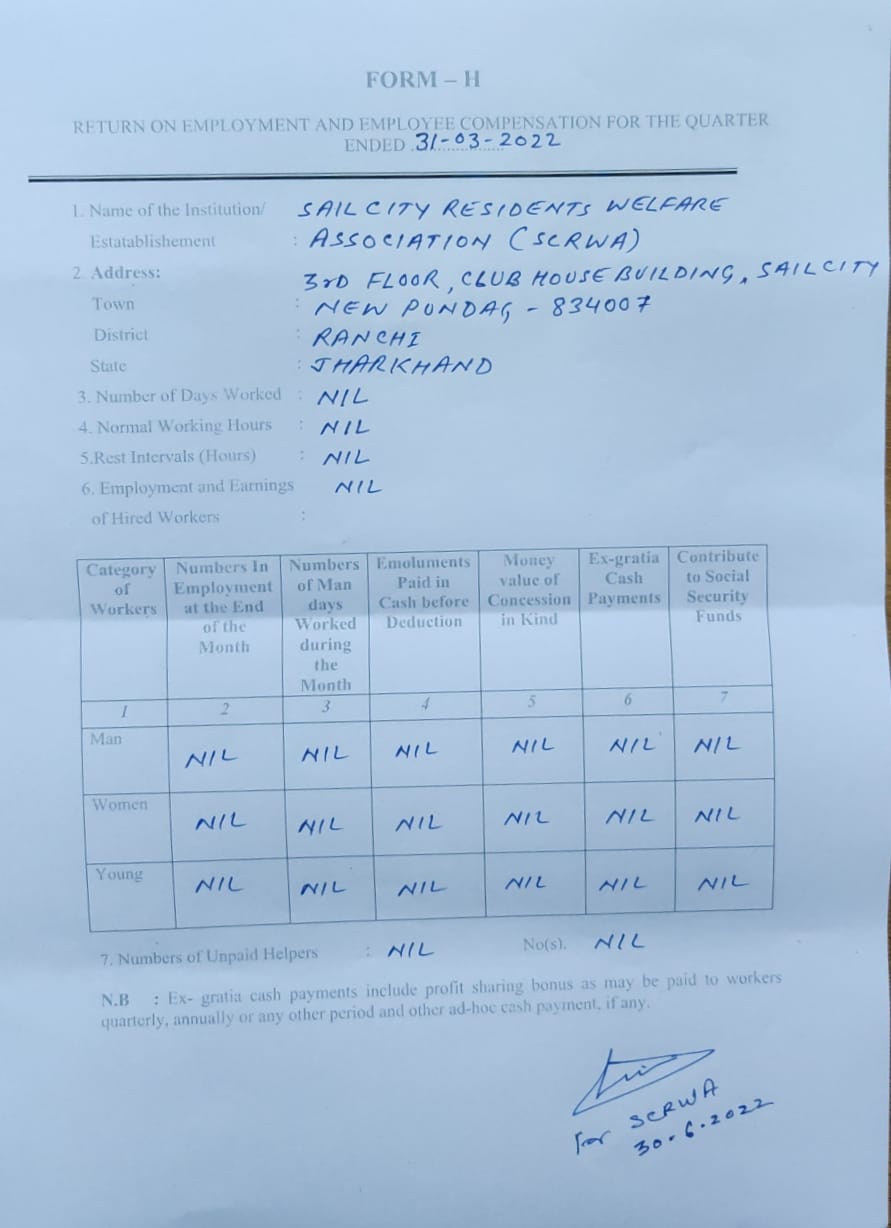 FORM – H
RETURN ON EMPLOYMENT AND EMPLOYEE COMPENSATION FOR THE QUARTER
ENDED 31-03-2022
1. Name of the Institution/ SAIL CITY RESIDENTS WELFARE
Estatablishement : ASSOCIATION (SCRWA)
2. Address: 3rD FLOOR, CLUB HOUSE BUILDING, SAIL CITY
Town : NEW PUNDAG - 834007
District : RANCHI
State : JHARKHAND
3. Number of Days Worked : NIL
4. Normal Working Hours : NIL
5.Rest Intervals (Hours) : NIL
6. Employment and Earnings NIL
of Hired Workers :
Category of Workers Numbers In Employment at the End of the Month Numbers of Man days Worked during the Month Emoluments Paid in Cash before Deduction Money value of Concession in Kind Ex-gratia Cash Payments Contribute to Social Security Funds
1 2 3 4 5 6 7
Man NIL NIL NIL NIL NIL NIL
Women NIL NIL NIL NIL NIL NIL
Young NIL NIL NIL NIL NIL NIL
7. Numbers of Unpaid Helpers : NIL No(s). NIL
N.B : Ex- gratia cash payments include profit sharing bonus as may be paid to workers
quarterly, annually or any other period and other ad-hoc cash payment, if any.
For SCRWA
30.6.2022